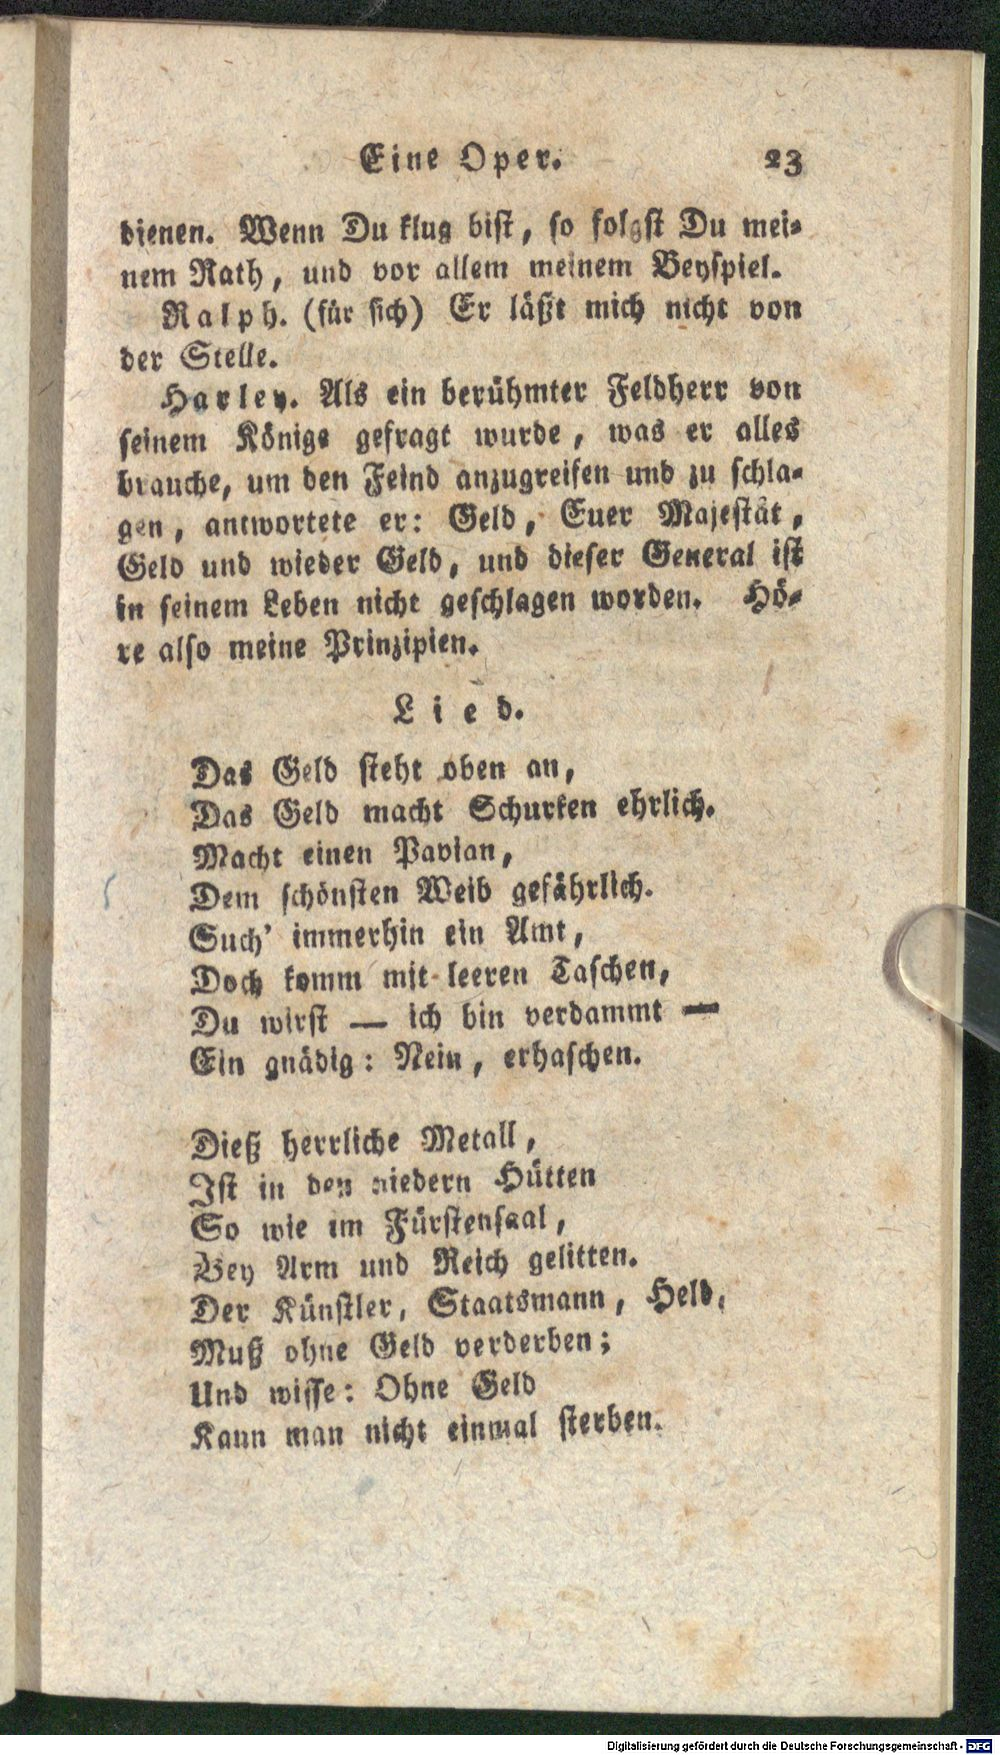 Eine Oper. 23
dienen. Wenn Du klug bist, so folgst Du mei-
nem Rath, und vor allem meinem Beyspiel.
Ralph. (für sich) Er läßt mich nicht von
der Stelle.
Harley. Als ein berühmter Feldherr von
seinem Könige gefragt wurde, was er alles
brauche, um den Feind anzugreifen und zu schla-
gen, antwortete er: Geld, Euer Majestät,
Geld und wieder Geld, und dieser General ist
in seinem Leben nicht geschlagen worden. Hö-
re also meine Prinzipien.
Lied.
Das Geld steht oben an,
Das Geld macht Schurken ehrlich.
Macht einen Pavian,
Dem schönsten Weib gefährlich.
Such' immerhin ein Amt,
Doch komm mit leeren Taschen,
Du wirst — ich bin verdammt —
Ein gnädig: Nein, erhaschen.
Dieß herrliche Metall,
Ist in den niedern Hütten
So wie im Fürstensaal,
Bey Arm und Reich gelitten.
Der Künstler, Staatsmann, Held,
Muß ohne Geld verderben;
Und wisse: Ohne Geld
Kann man nicht einmal sterben.
Digitalisierung gefördert durch die Deutsche Forschungsgemeinschaft - DFG